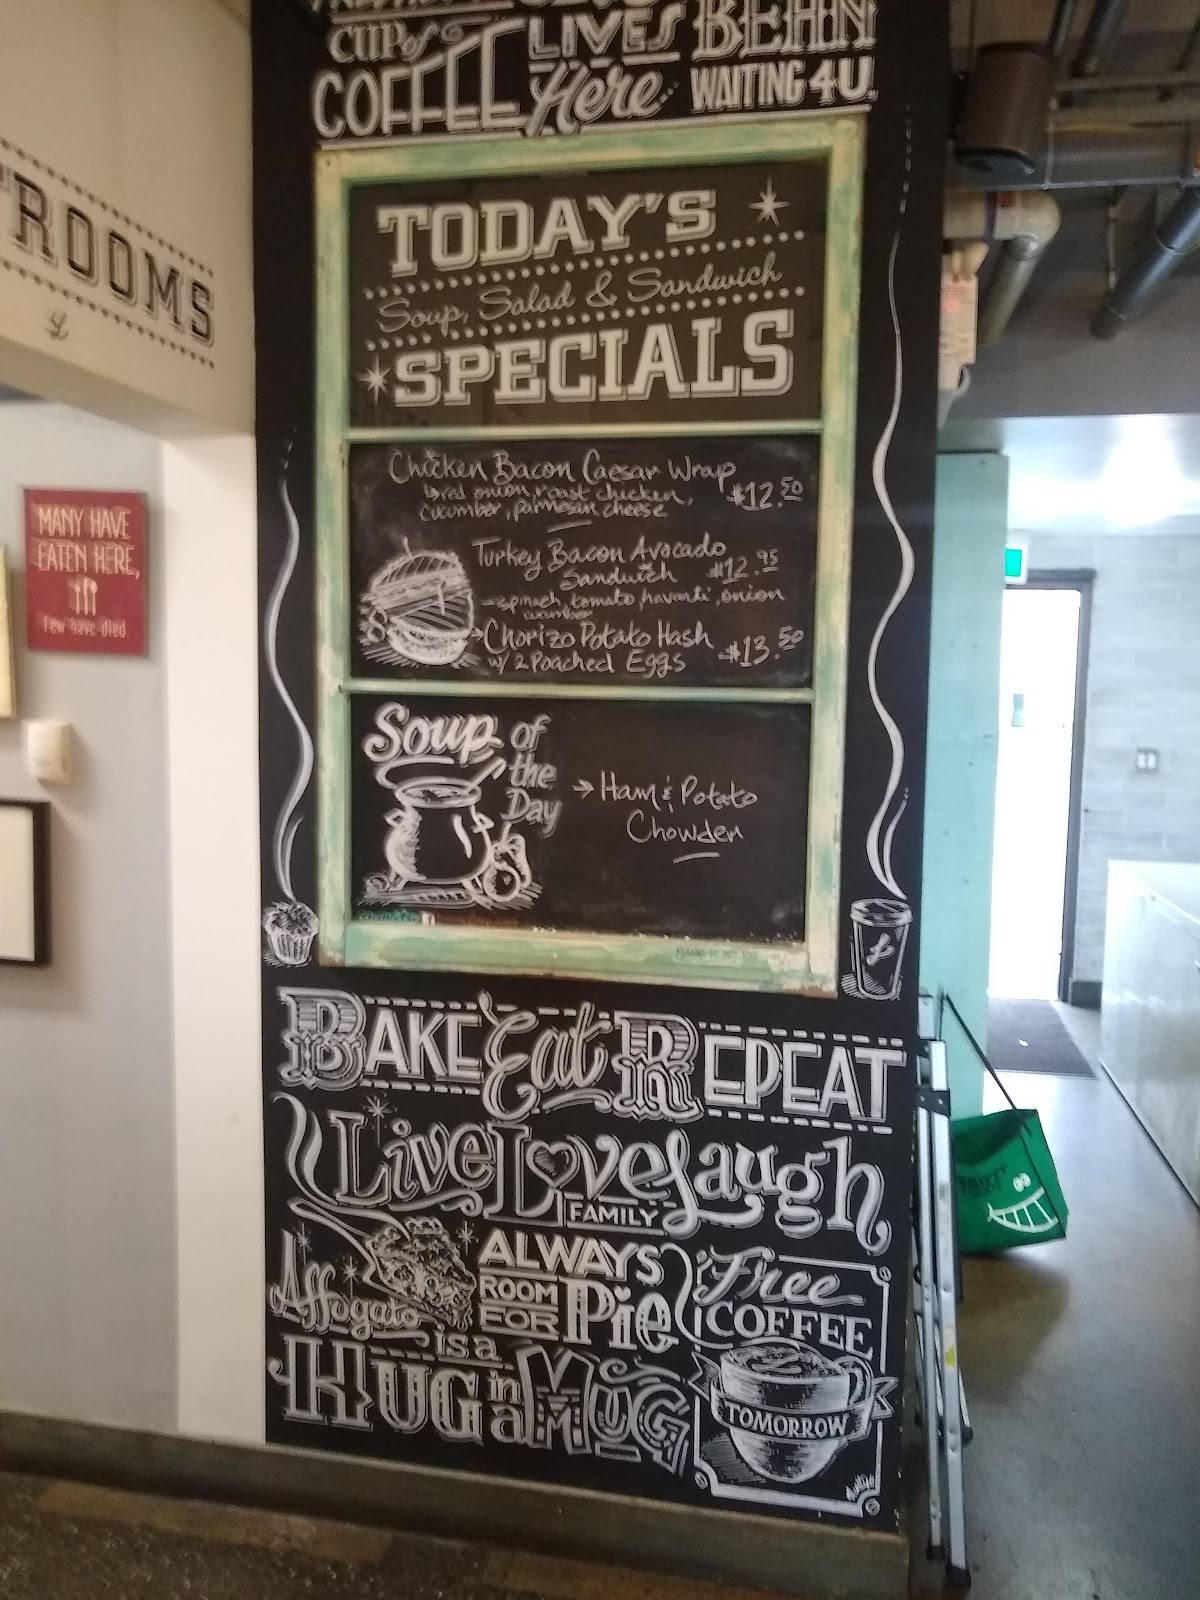 CUP of
COFFEE
LIVES
Here
BEHN
WAITING 4U.
ROOMS
TODAY'S
Soup, Salad & Sandwich
SPECIALS
MANY HAVE
EATEN HERE,
Few have died.
Chicken Bacon Caesar Wrap
red onion, roast chicken, $12.50
cucumber, parmesan cheese
Turkey Bacon Avocado
Sandwich $12.95
spinach, tomato, havarti, onion
cucumber
Chorizo Potato Hash
w/ 2 Poached Eggs $13.50
Soup of
the
Day
→ Ham & Potato
Chowder
BAKE Eat REPEAT
Live Love Laugh
FAMILY
ALWAYS
ROOM
FOR Pie
Affogato
is a
HUG in a MUG
Free
COFFEE
TOMORROW